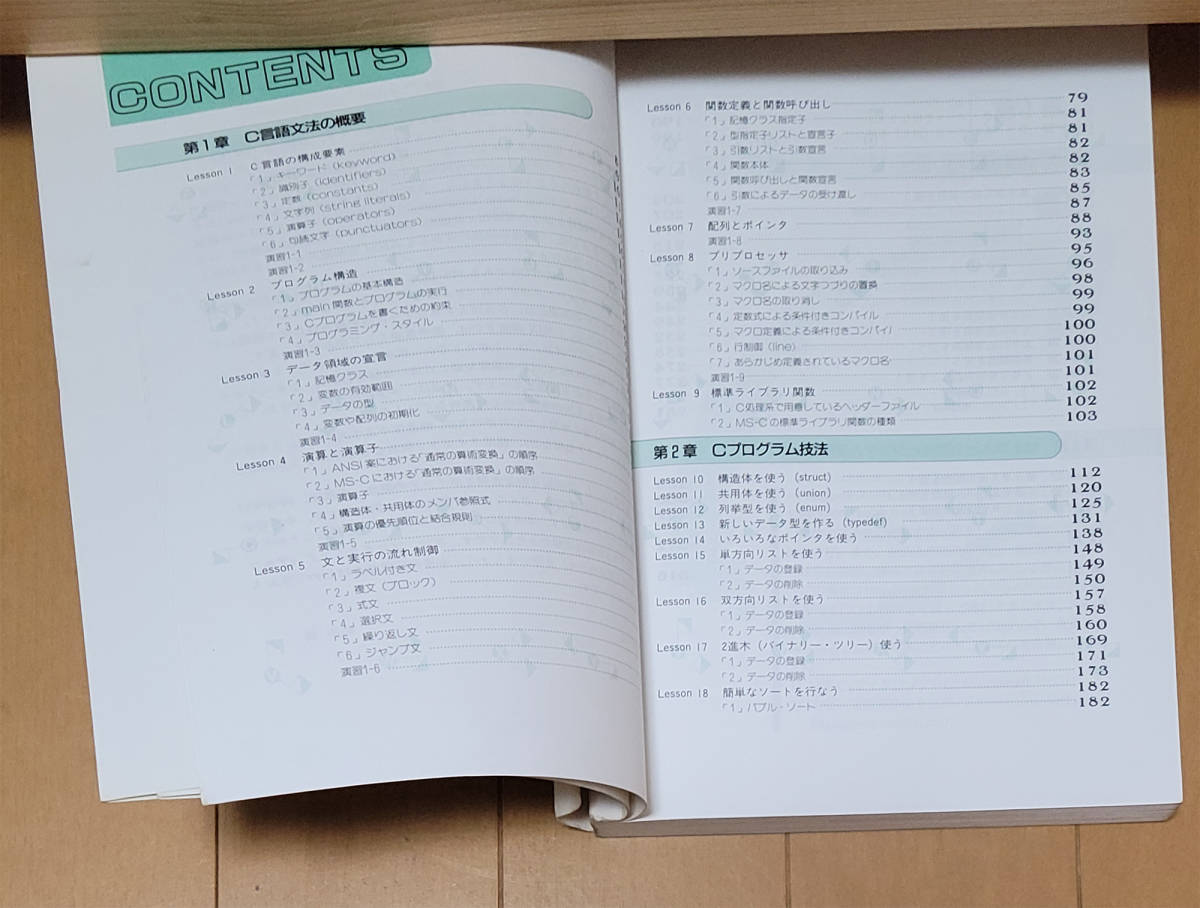 CONTENTS
第1章 C言語文法の概要
Lesson 1 C言語の構成要素
「1」キーワード (keyword)
「2」識別子 (identifiers)
「3」定数 (constants)
「4」文字列 (string literals)
「5」演算子 (operators)
「6」句読文字 (punctuators)
演習1-1
演習1-2
Lesson 2 プログラム構造
「1」プログラムの基本構造
「2」main関数とプログラムの実行
「3」Cプログラムを書くための約束
「4」プログラミング・スタイル
演習1-3
Lesson 3 データ領域の宣言
「1」記憶クラス
「2」変数の有効範囲
「3」データの型
「4」変数や配列の初期化
演習1-4
Lesson 4 演算と演算子
「1」ANSI案における「通常の算術変換」の順序
「2」MS-Cにおける「通常の算術変換」の順序
「3」演算子
「4」構造体・共用体のメンバ参照式
「5」演算の優先順位と結合規則
演習1-5
Lesson 5 文と実行の流れ制御
「1」ラベル付き文
「2」複文 (ブロック)
「3」式文
「4」選択文
「5」繰り返し文
「6」ジャンプ文
演習1-6
Lesson 6 関数定義と関数呼び出し 79
「1」記憶クラス指定子 81
「2」型指定子リストと宣言子 81
「3」引数リストと引数宣言 82
「4」関数本体 82
「5」関数呼び出しと関数宣言 83
「6」引数によるデータの受け渡し 85
演習1-7 87
Lesson 7 配列とポインタ 88
演習1-8 93
Lesson 8 プリプロセッサ 95
「1」ソースファイルの取り込み 96
「2」マクロ名による文字つづりの置換 98
「3」マクロ名の取り消し 99
「4」定数式による条件付きコンパイル 99
「5」マクロ定義による条件付きコンパイル 100
「6」行制御 (line) 100
「7」あらかじめ定義されているマクロ名 101
演習1-9 101
Lesson 9 標準ライブラリ関数 102
「1」C処理系で用意しているヘッダーファイル 102
「2」MS-Cの標準ライブラリ関数の種類 103
第2章 Cプログラム技法
Lesson 10 構造体を使う (struct) 112
Lesson 11 共用体を使う (union) 120
Lesson 12 列挙型を使う (enum) 125
Lesson 13 新しいデータ型を作る (typedef) 131
Lesson 14 いろいろなポインタを使う 138
Lesson 15 単方向リストを使う 148
「1」データの登録 149
「2」データの削除 150
Lesson 16 双方向リストを使う 157
「1」データの登録 158
「2」データの削除 160
Lesson 17 2進木 (バイナリー・ツリー) 使う 169
「1」データの登録 171
「2」データの削除 173
Lesson 18 簡単なソートを行なう 182
「1」バブル・ソート 182